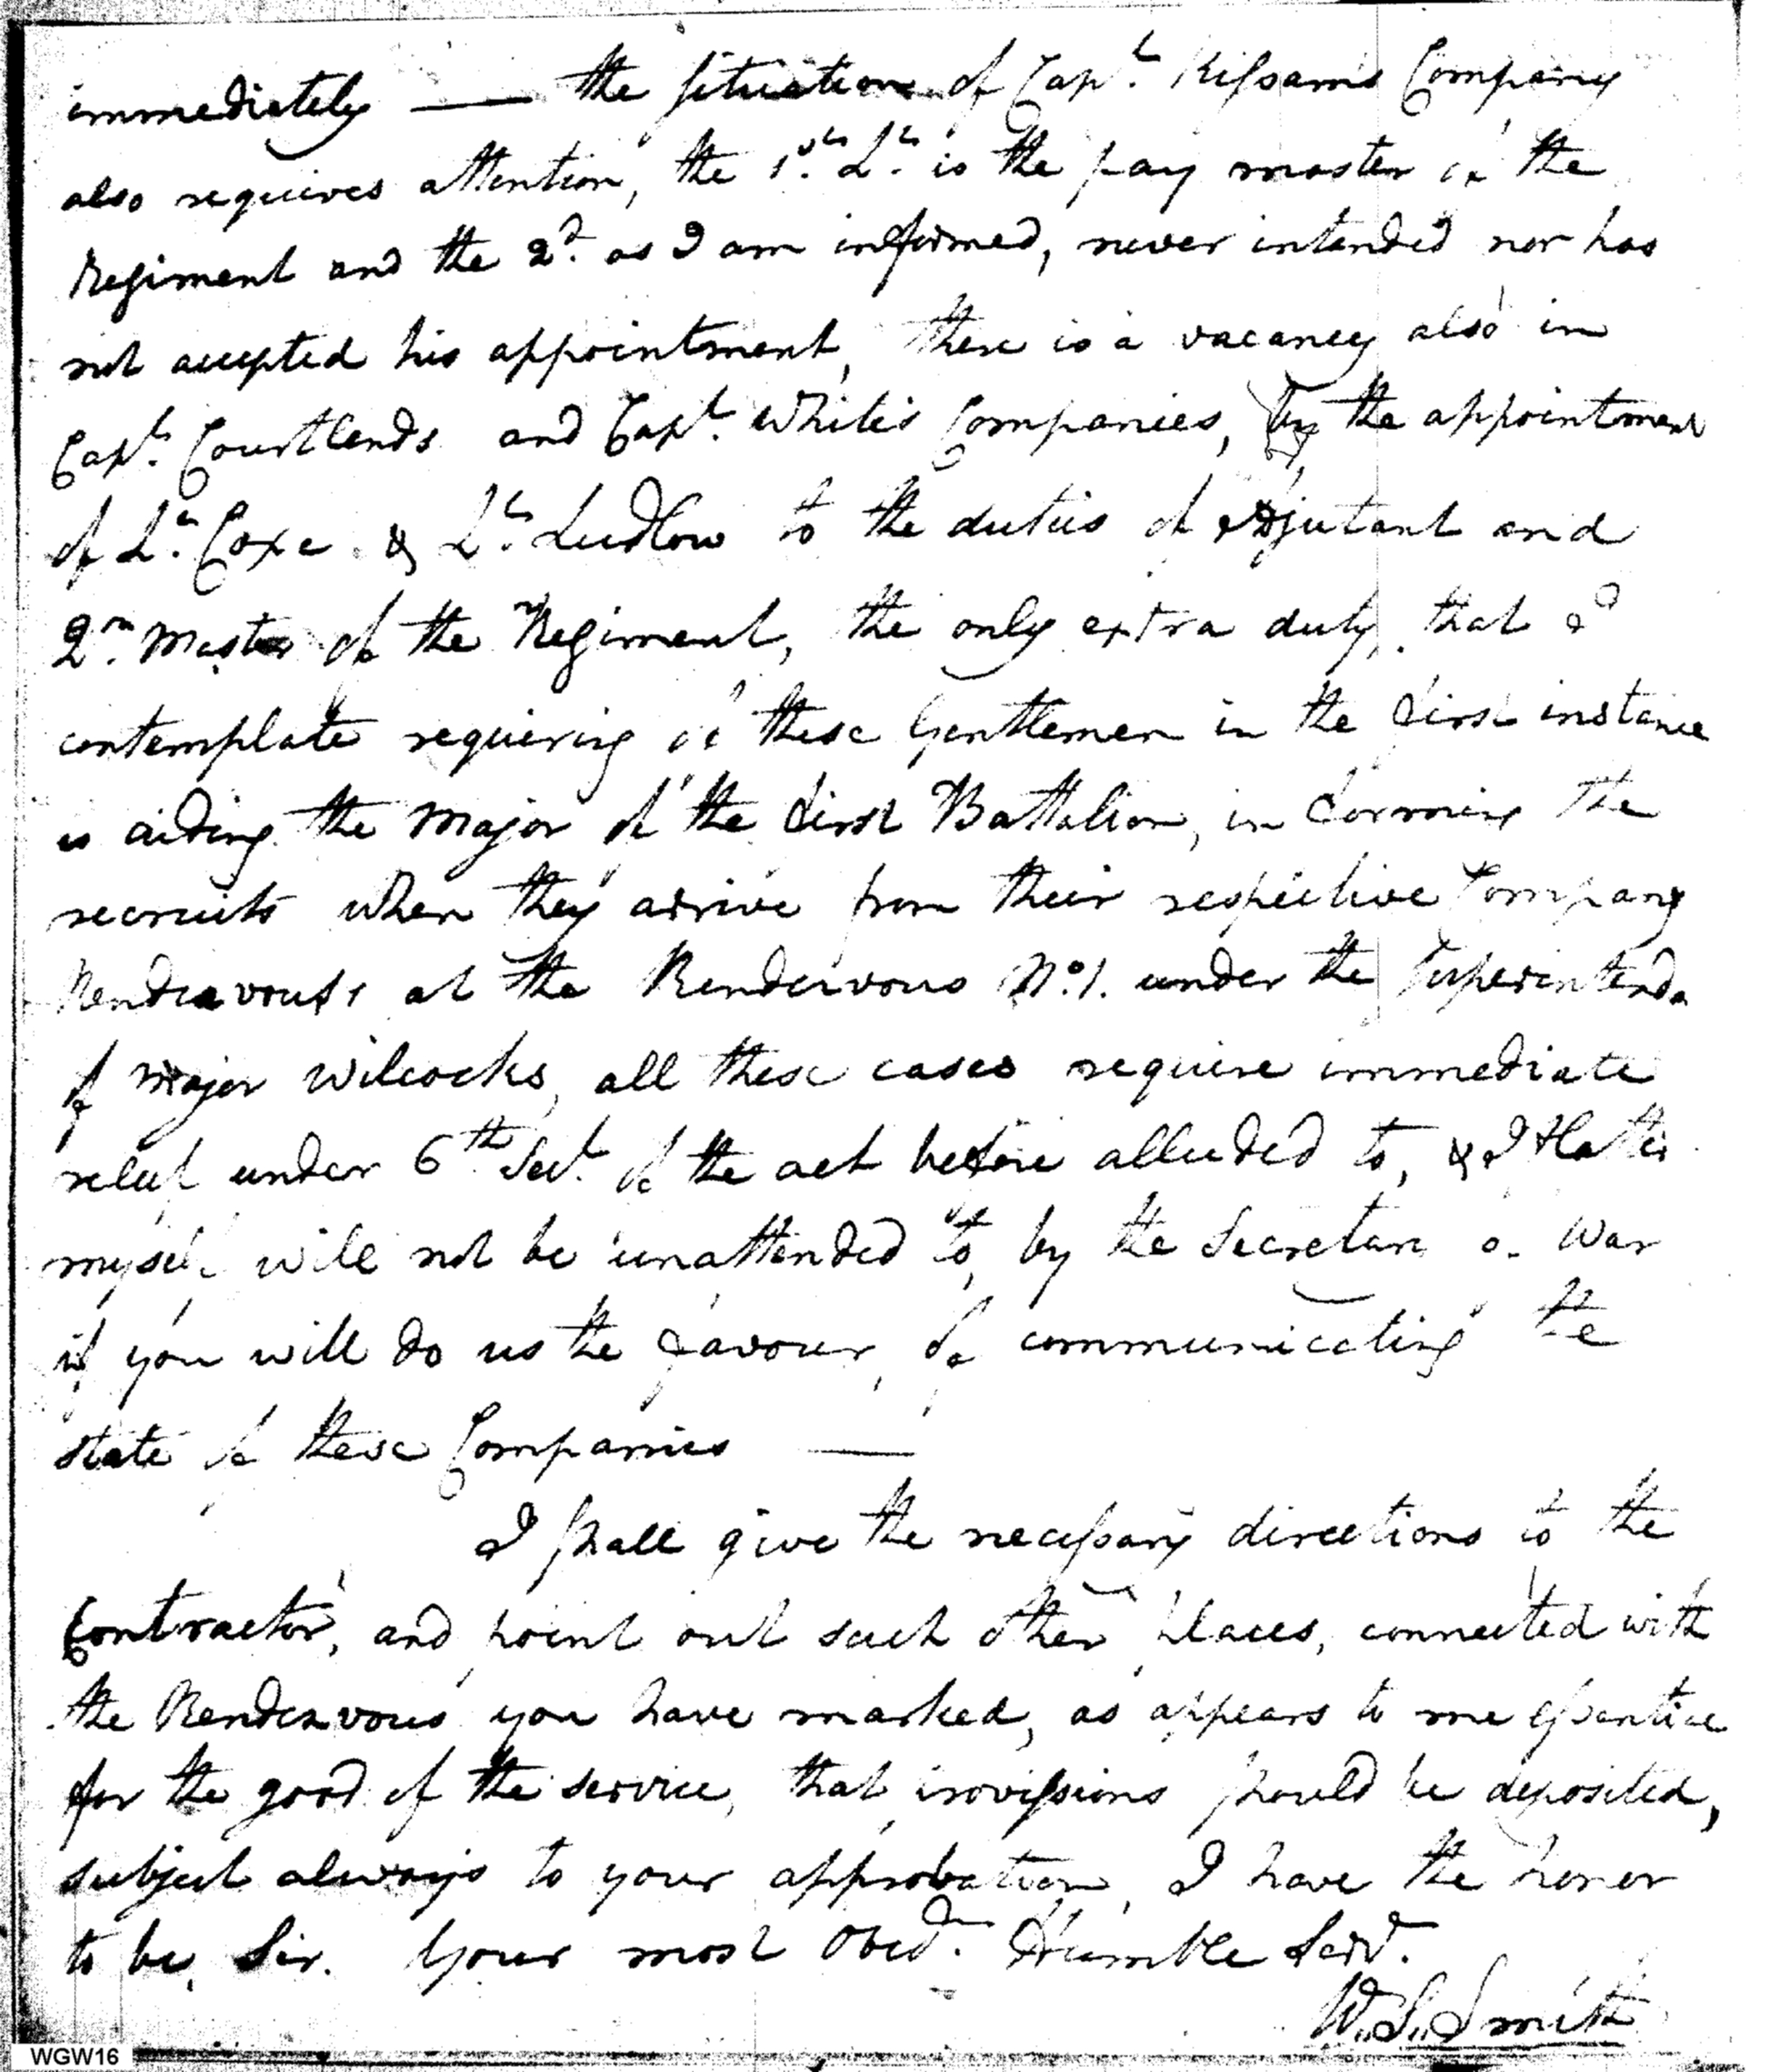 immediately — the situation of Capt. Kissams Company
also requires attention, the 1st. Lt. is the pay master of the
Regiment and the 2d. as I am informed, never intended nor has
not accepted his appointment, there is a vacancy also in
Capt. Courtlends and Capt. Whites Companies, by the appointment
of Lt. Coxe & Lt. Ludlow to the duties of Adjutant and
Qr. Master of the Regiment, the only extra duty, that I
contemplate requiering of these Gentlemen in the first instance
is aiding the Major of the first Battalion, in forming the
recruits when they arrive from their respective Company
Rendezvous's at the Rendezvous No. 1. under the Superintend.
of Major Wilcocks, all these cases require immediate
relief under 6th Sect. of the act before alluded to, & I flatter
myself will not be unattended to, by the Secretary of War
if you will do us the favour, of communicating the
state of these Companies —
I shall give the necessary directions to the
Contractor, and point out such other places, connected with
the Rendezvous you have marked, as appears to me essential
for the good of the service, that provissions should be deposited,
subject always to your approbation, I have the honor
to be, Sir. Your most Obed. Humble Servt.
W. S. Smith
WGW16